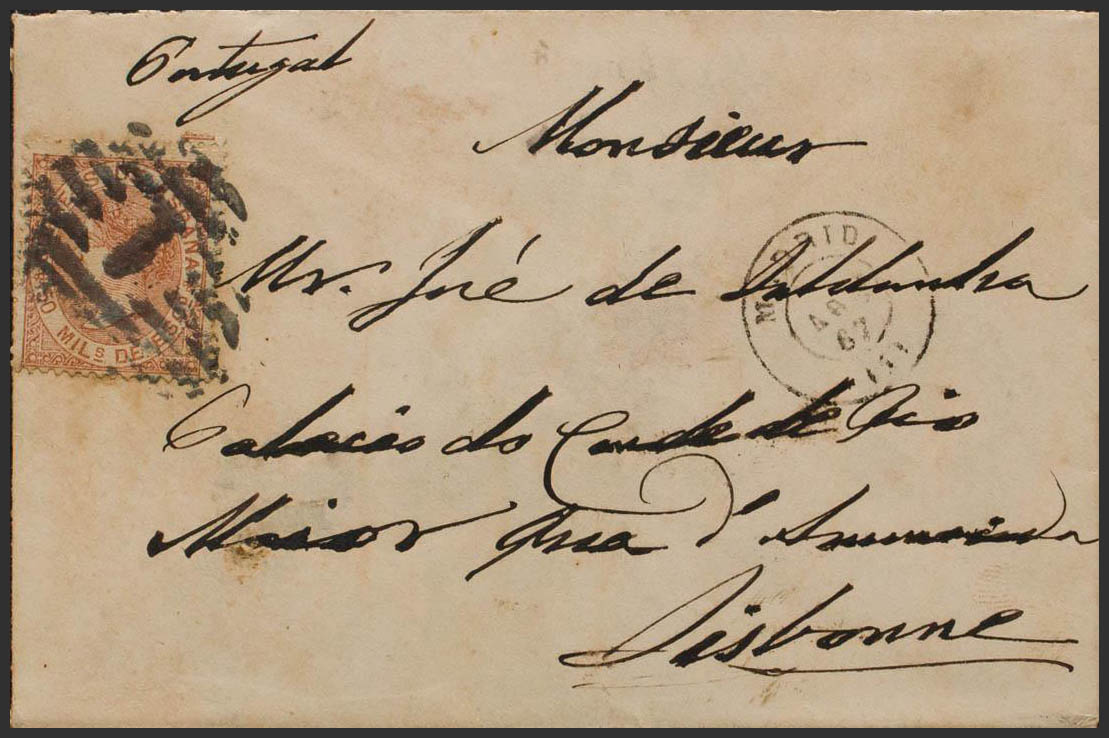 Portugal
Monsieur
Mr. José de Saldanha
Palacio do Conde de Rio
Maior Rua d'Anunciada
Lisbonne
MADRID
AG
67
MILs DE